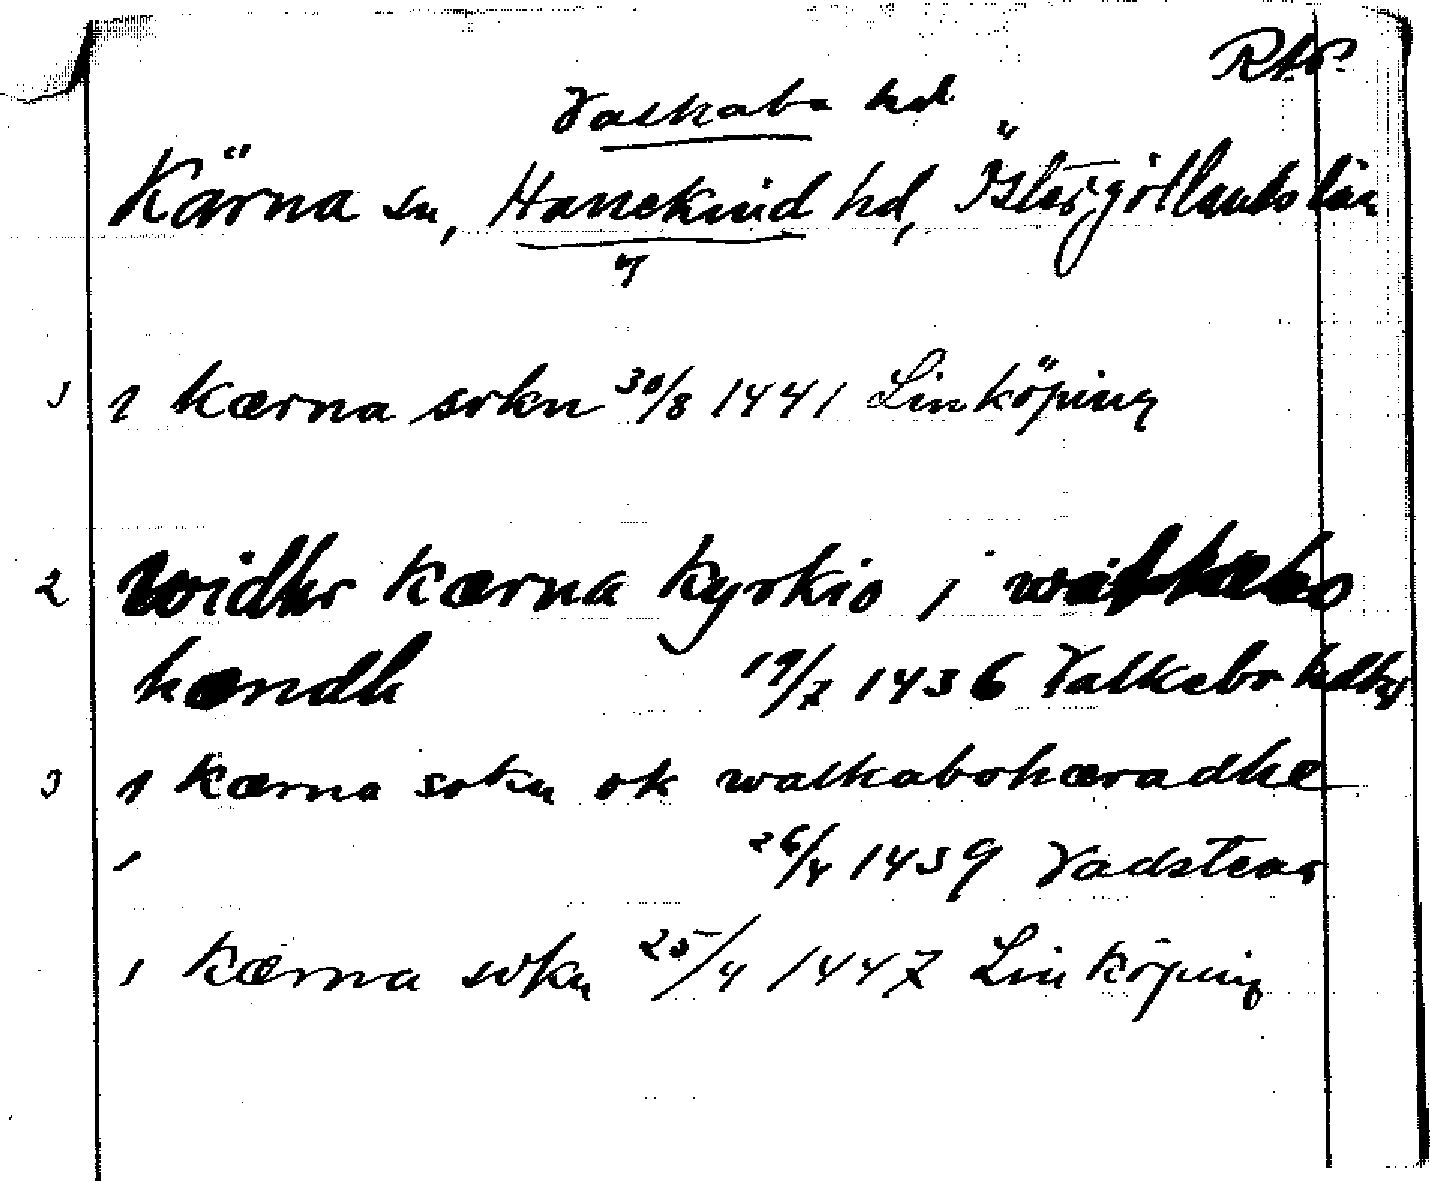 RAp.
Valkabo hd
Kärna sn, Hanekind hd, Östergötlands län
?
1 i kærna sokn 30/8 1441 Linköping
2 widhr kærna kyrkio i
hændh 19/7 1436 Valkebo
3 i kærna sokn ok walkabohæradhe
26/4 1439 Vadstena
i kærna sokn 25/4 1447 Linköping